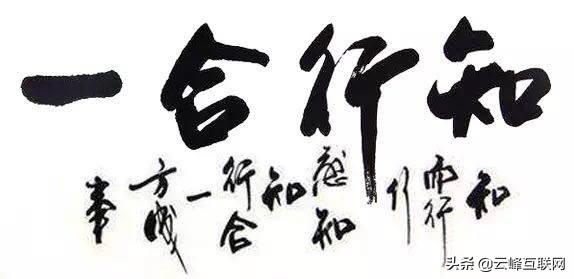 知行合一
知而行行感知知行合一方成事
头条 @云峰互联网